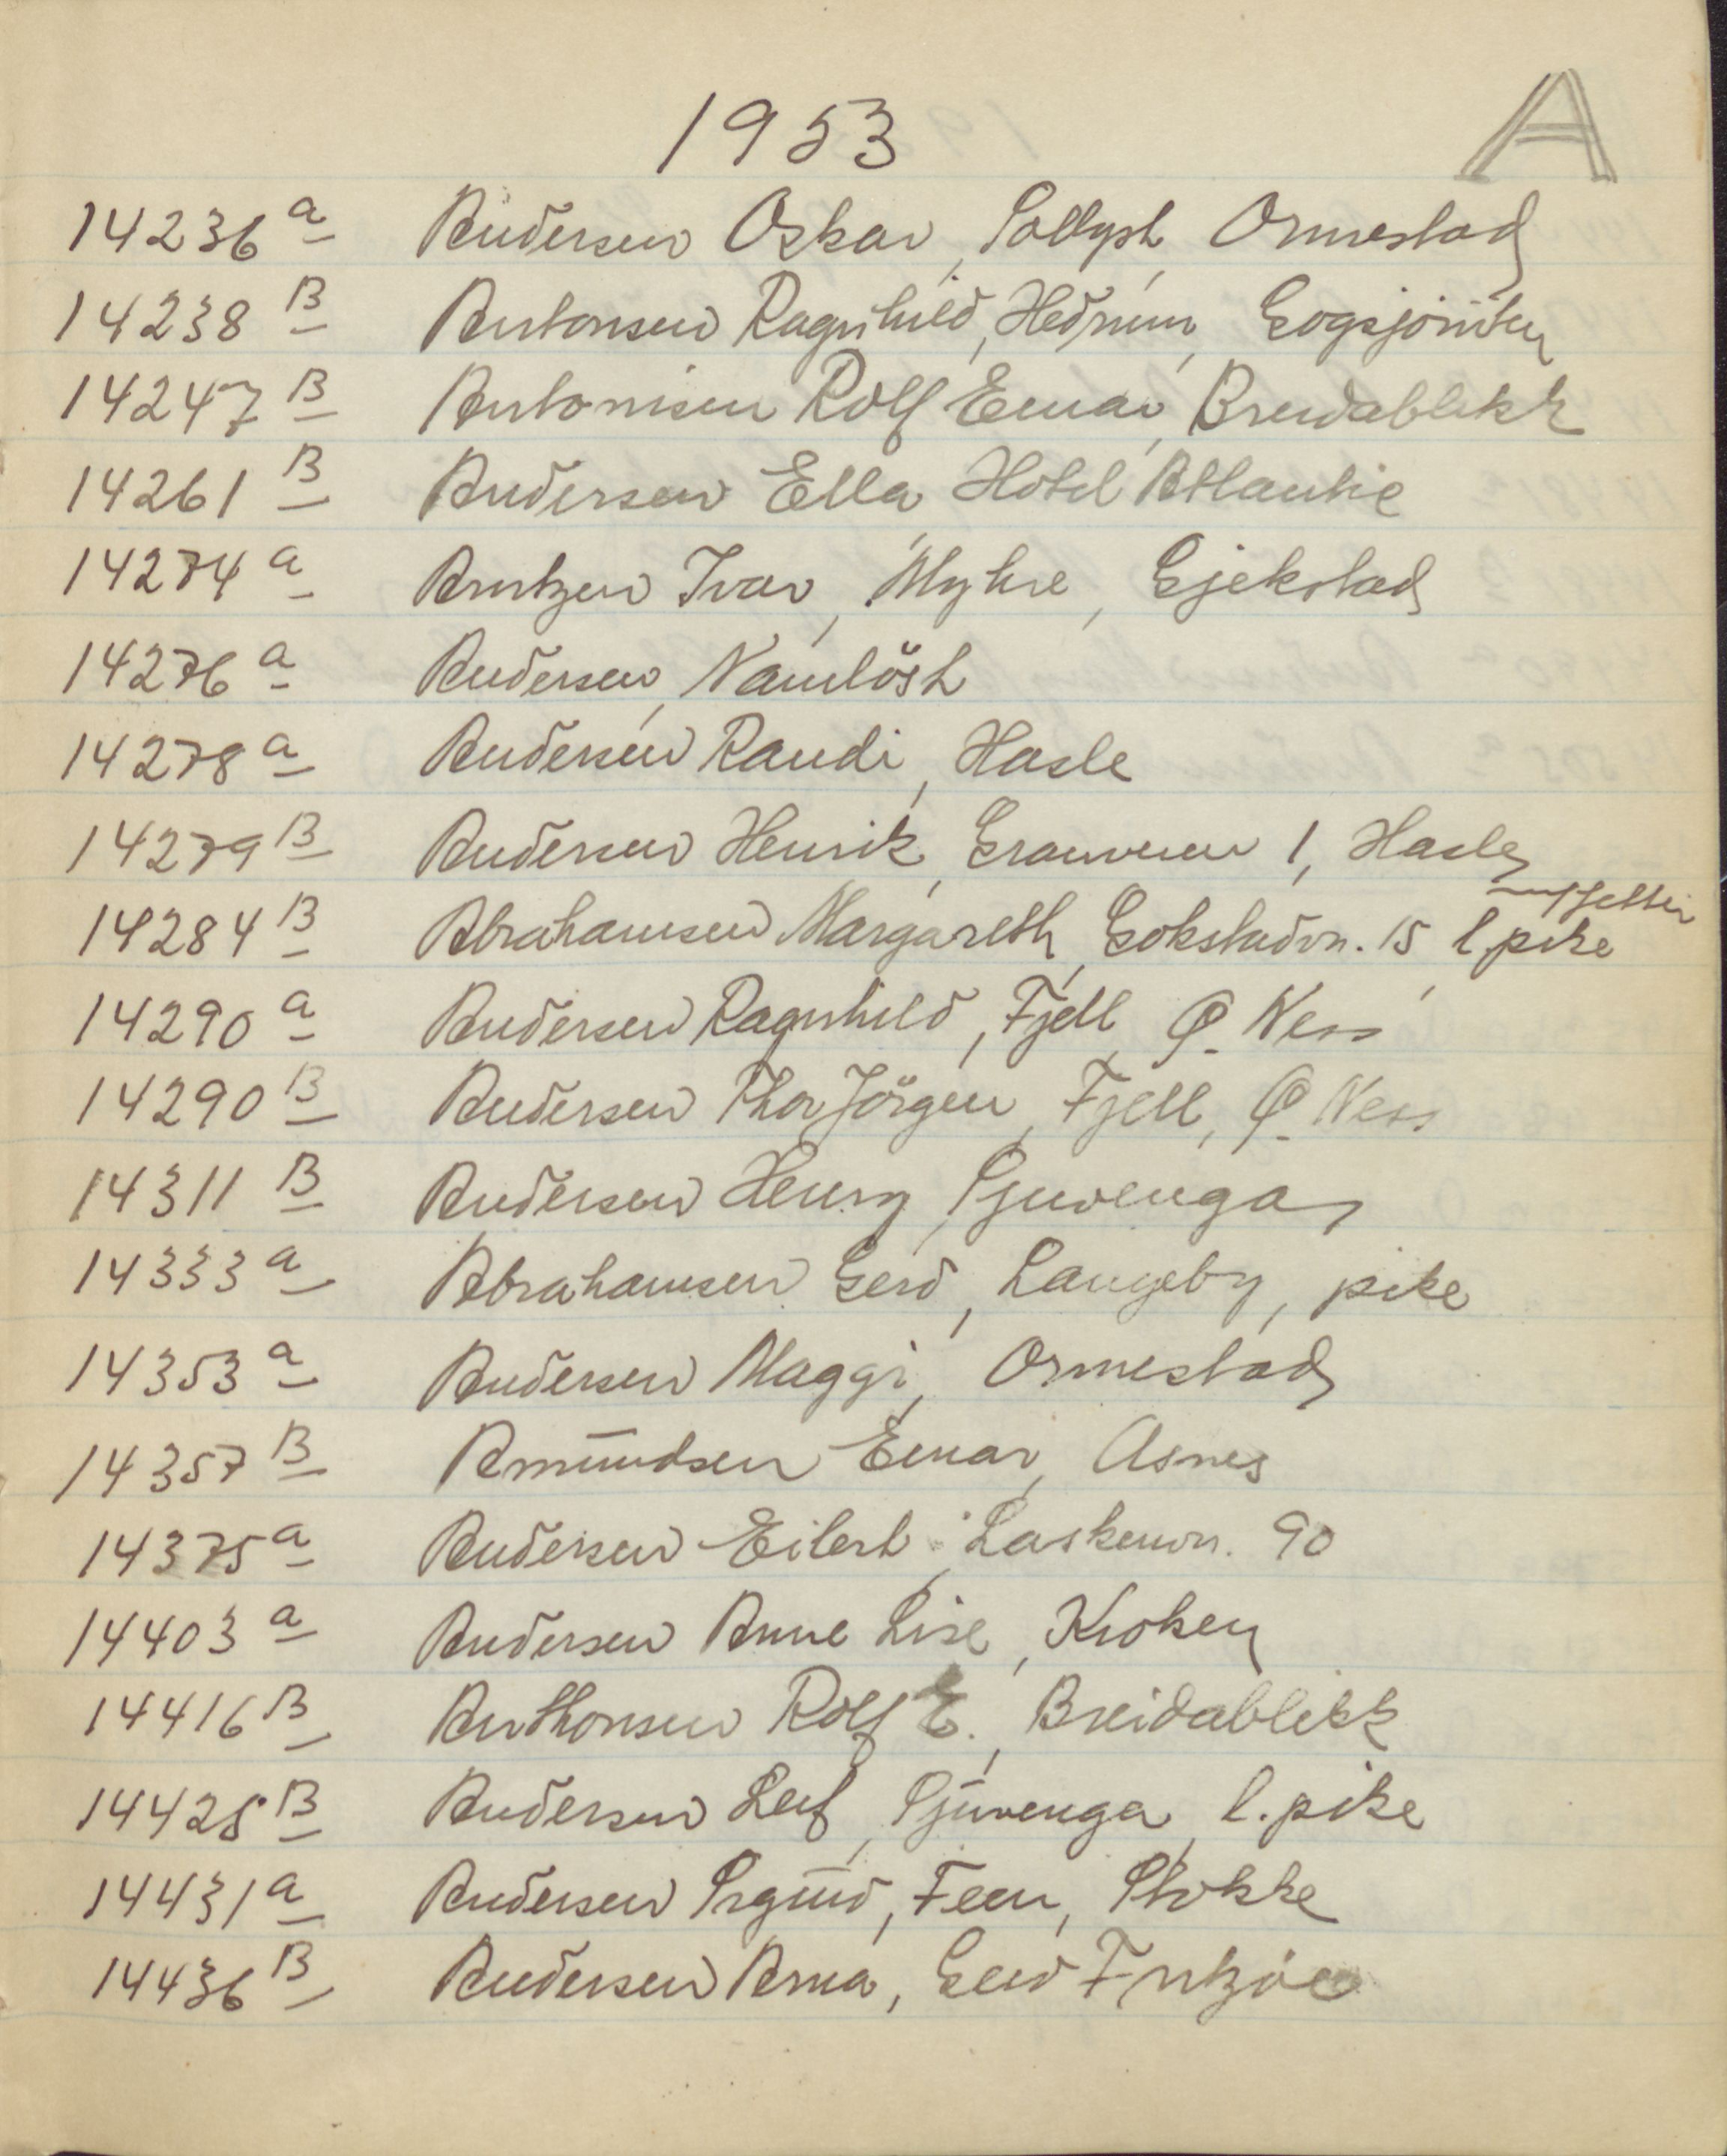 1953
A
14236 a Andersen Oskar, Sollyst, Ormestad
14238 B Antonsen Ragnhild, Hedrum, Gogsjöruten
14247 B Antonisen Rolf Einar, Breidablikk
14261 B Andersen Ella Hotel Atlantic
14274 a Arntzen Ivar, Myhre, Gjekstad
14276 a Andersen, Namlöst
14278 a Andersen Randi, Hasle
14279 B Andersen Henrik, Granveien 1, Hasle
14284 B Abrahamsen Margareth, Gokstadvn. 15, l. pike
14290 a Andersen Ragnhild, Fjell, Ø. Ness
14290 B Andersen Thor Jörgen, Fjell, Ø. Ness
14311 B Andersen Henry, Sjuvenga
14333 a Abrahamsen Gerd, Langeby, pike
14353 a Andersen Maggi, Ormestad
14357 B Amundsen Einar, Asnes
14375 a Andersen Eilert, Laskenvn. 90
14403 a Andersen Anne Lise, Kroken
14416 B Anthonsen Rolf E., Breidablikk
14428 B Andersen Leif, Sjuvenga, l. pike
14431 a Andersen Sigurd, Feen, Stokke
14436 B Andersen Arna, Gerd Fritzöe